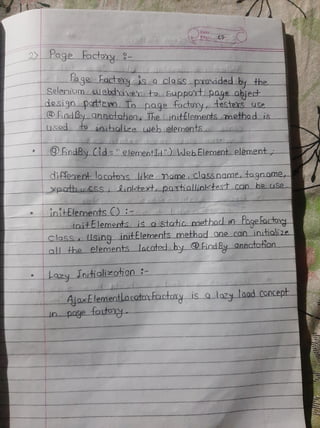 2) Page Factory :-
Page Factory is a class provided by the
Selenium Webdriver to support page object
design pattern In page factory, testers use
@FindBy annotation. The initElements method is
used to initialize web elements.
• @FindBy (id = "elementId") WebElement element;
different locators like name, classname, tagname,
xpath, css, linktext, partiallinktext can be use
• initElements () :-
initElements is a static method in PageFactory
class, Using initElements method one can initialize
all the elements located by @FindBy annotation
• Lazy Initialization :-
AjaxElementLocatorFactory is a lazy load concept
in page factory.